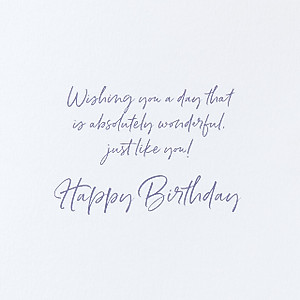 Wishing you a day that
is absolutely wonderful,
just like you!
Happy Birthday